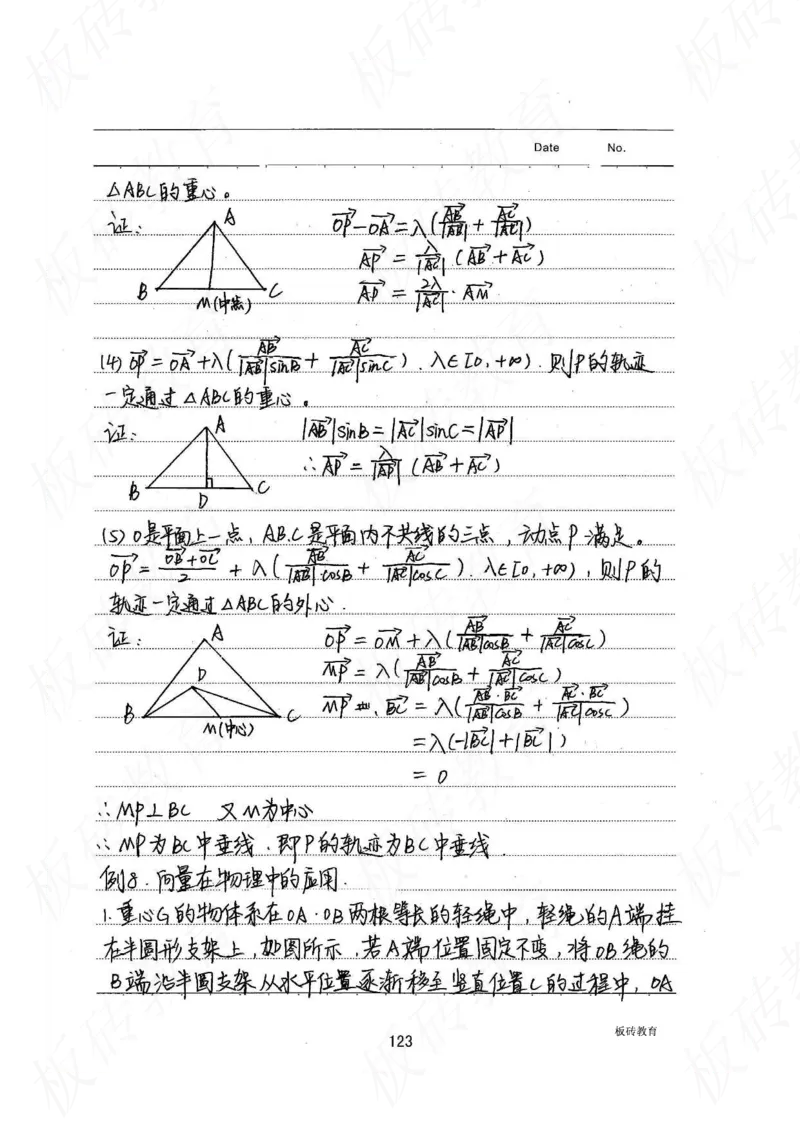 Date No.
△ABC的重心。
证: A B C M(中点)
OP→-OA→=λ(AB→/|AB→|+AC→/|AC→|)
AP→=λ/|AC→|(AB→+AC→)
AP→=2λ/|AC→|·AM→
(4) OP→=OA→+λ(AB→/|AB→|sinB+AC→/|AC→|sinC).λ∈[0,+∞).则P的轨迹
一定通过△ABC的重心。
证: A B C D
|AB→|sinB=|AC→|sinC=|AP→|
∴AP→=λ/|AP→|(AB→+AC→)
(5) O是平面上一点,A.B.C是平面内不共线的三点,动点P满足。
OP→=(OB→+OC→)/2+λ(AB→/|AB→|cosB+AC→/|AC→|cosC).λ∈[0,+∞),则P的
轨迹一定通过△ABC的外心.
证: A D B C M(中心)
OP→=OM→+λ(AB→/|AB→|cosB+AC→/|AC→|cosC)
MP→=λ(AB→/|AB→|cosB+AC→/|AC→|cosC)
MP→·BC→=λ(AB→·BC→/|AB→|cosB+AC→·BC→/|AC→|cosC)
=λ(-|BC→|+|BC→|)
=0
∴MP⊥BC 又M为中心
∴MP为BC中垂线.即P的轨迹为BC中垂线.
例8.向量在物理中的应用.
1.重心G的物体系在OA·OB两根等长的轻绳中,轻绳的A端挂
在半圆形支架上,如图所示.若A端位置固定不变,将OB绳的
B端沿半圆支架从水平位置逐渐移至竖直位置C的过程中,OA
板砖教育
123